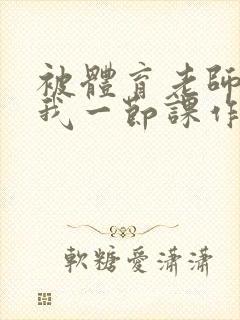 被體育老師
我一節課作
軟糖愛瀟瀟